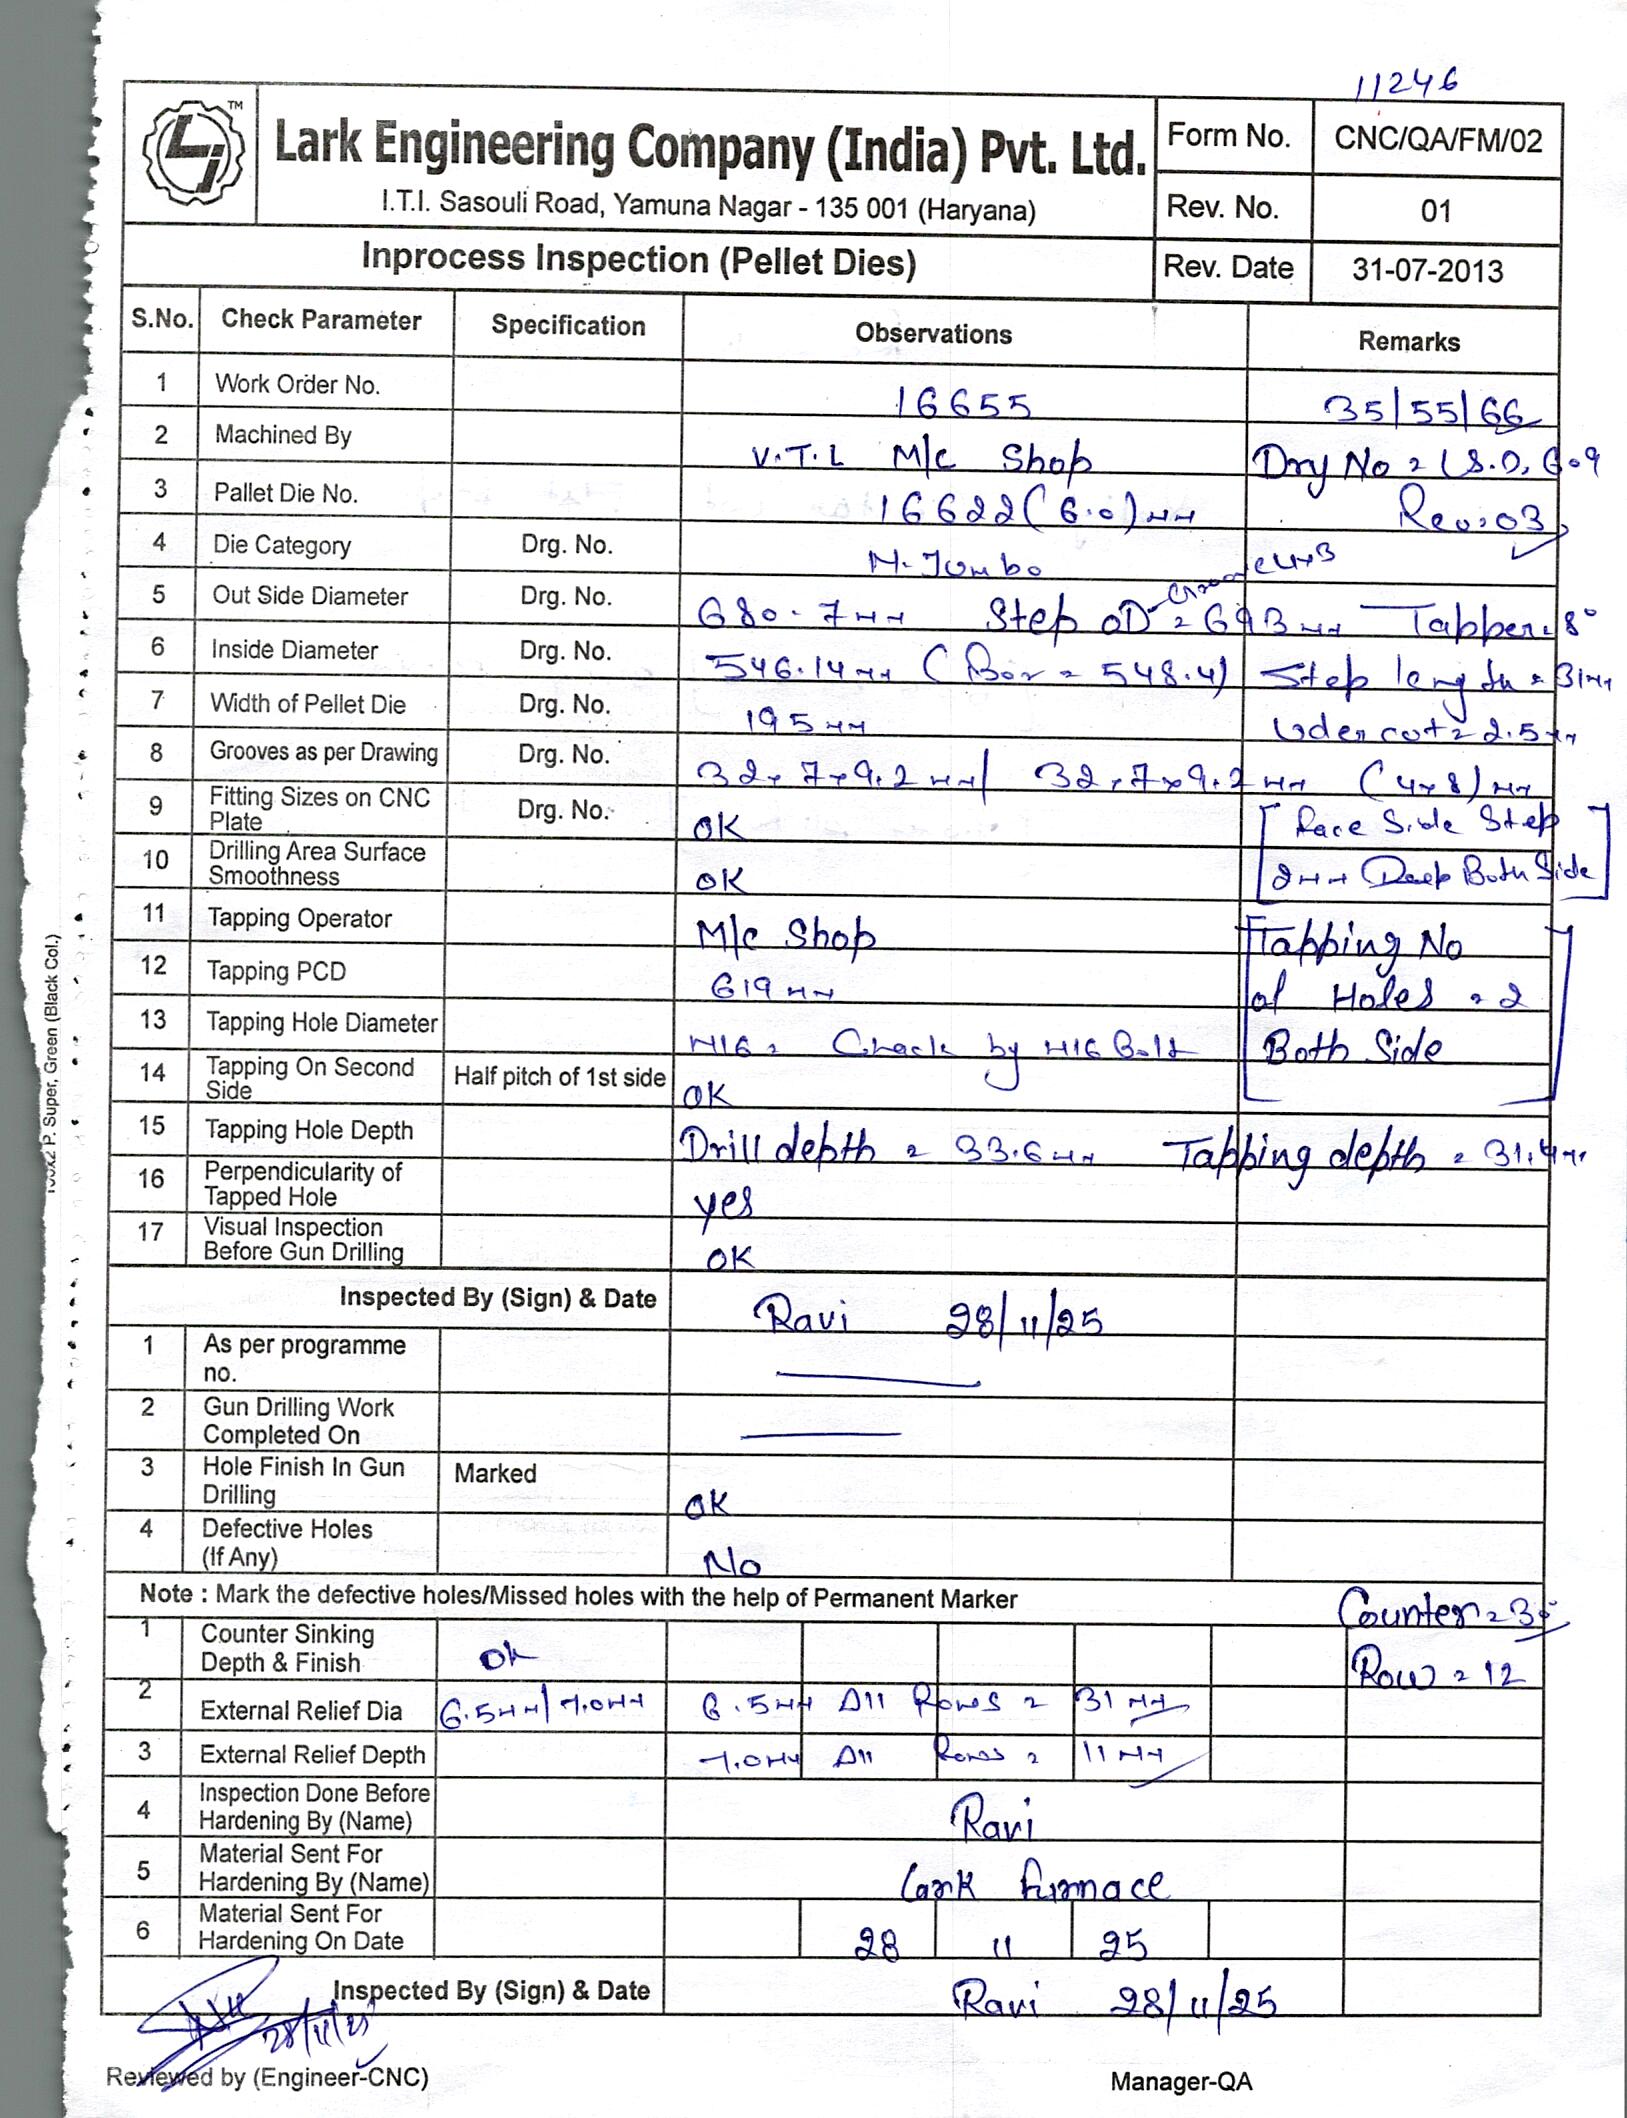 11246
TM
Lark Engineering Company (India) Pvt. Ltd.
I.T.I. Sasouli Road, Yamuna Nagar - 135 001 (Haryana)
Form No. CNC/QA/FM/02
Rev. No. 01
Inprocess Inspection (Pellet Dies) Rev. Date 31-07-2013
S.No. Check Parameter Specification Observations Remarks
1 Work Order No. 16655 35/55/66
2 Machined By V.T.L M/c Shop Drg No =
3 Pallet Die No. 16622 (6.0) mm Rev:03
4 Die Category Drg. No. M-Jumbo
5 Out Side Diameter Drg. No. 680.7mm Step OD = 693mm Tapper = 8°
6 Inside Diameter Drg. No. 546.14mm (Bor = 548.4) Step length = 31mm
7 Width of Pellet Die Drg. No. 195mm Udercut = 2.5mm
8 Grooves as per Drawing Drg. No. 32x7x9.2mm/ 32x7x9.2mm (4x8)mm
9 Fitting Sizes on CNC Plate Drg. No. OK [Race Side Step
10 Drilling Area Surface Smoothness OK 2mm Deep Both Side]
11 Tapping Operator M/c Shop [Tapping No
12 Tapping PCD 619mm of Holes = 2
13 Tapping Hole Diameter M16 = Chack by M16 Bolt Both Side]
14 Tapping On Second Side Half pitch of 1st side OK
15 Tapping Hole Depth Drill depth = 33.6mm Tapping depth = 31.4mm
16 Perpendicularity of Tapped Hole yes
17 Visual Inspection Before Gun Drilling OK
Inspected By (Sign) & Date Ravi 28/11/25
1 As per programme no.
2 Gun Drilling Work Completed On
3 Hole Finish In Gun Drilling Marked OK
4 Defective Holes (If Any) No
Note : Mark the defective holes/Missed holes with the help of Permanent Marker
Counter = 30°
1 Counter Sinking Depth & Finish OK Row = 12
2 External Relief Dia 6.5mm/7.0mm 6.5mm All Rows = 31mm
3 External Relief Depth 7.0mm All Rows = 11mm
4 Inspection Done Before Hardening By (Name) Ravi
5 Material Sent For Hardening By (Name) Lark furnace
6 Material Sent For Hardening On Date 28 11 25
Inspected By (Sign) & Date Ravi 28/11/25
28/11/25
Reviewed by (Engineer-CNC) Manager-QA
P. Super, Green (Black Col.)